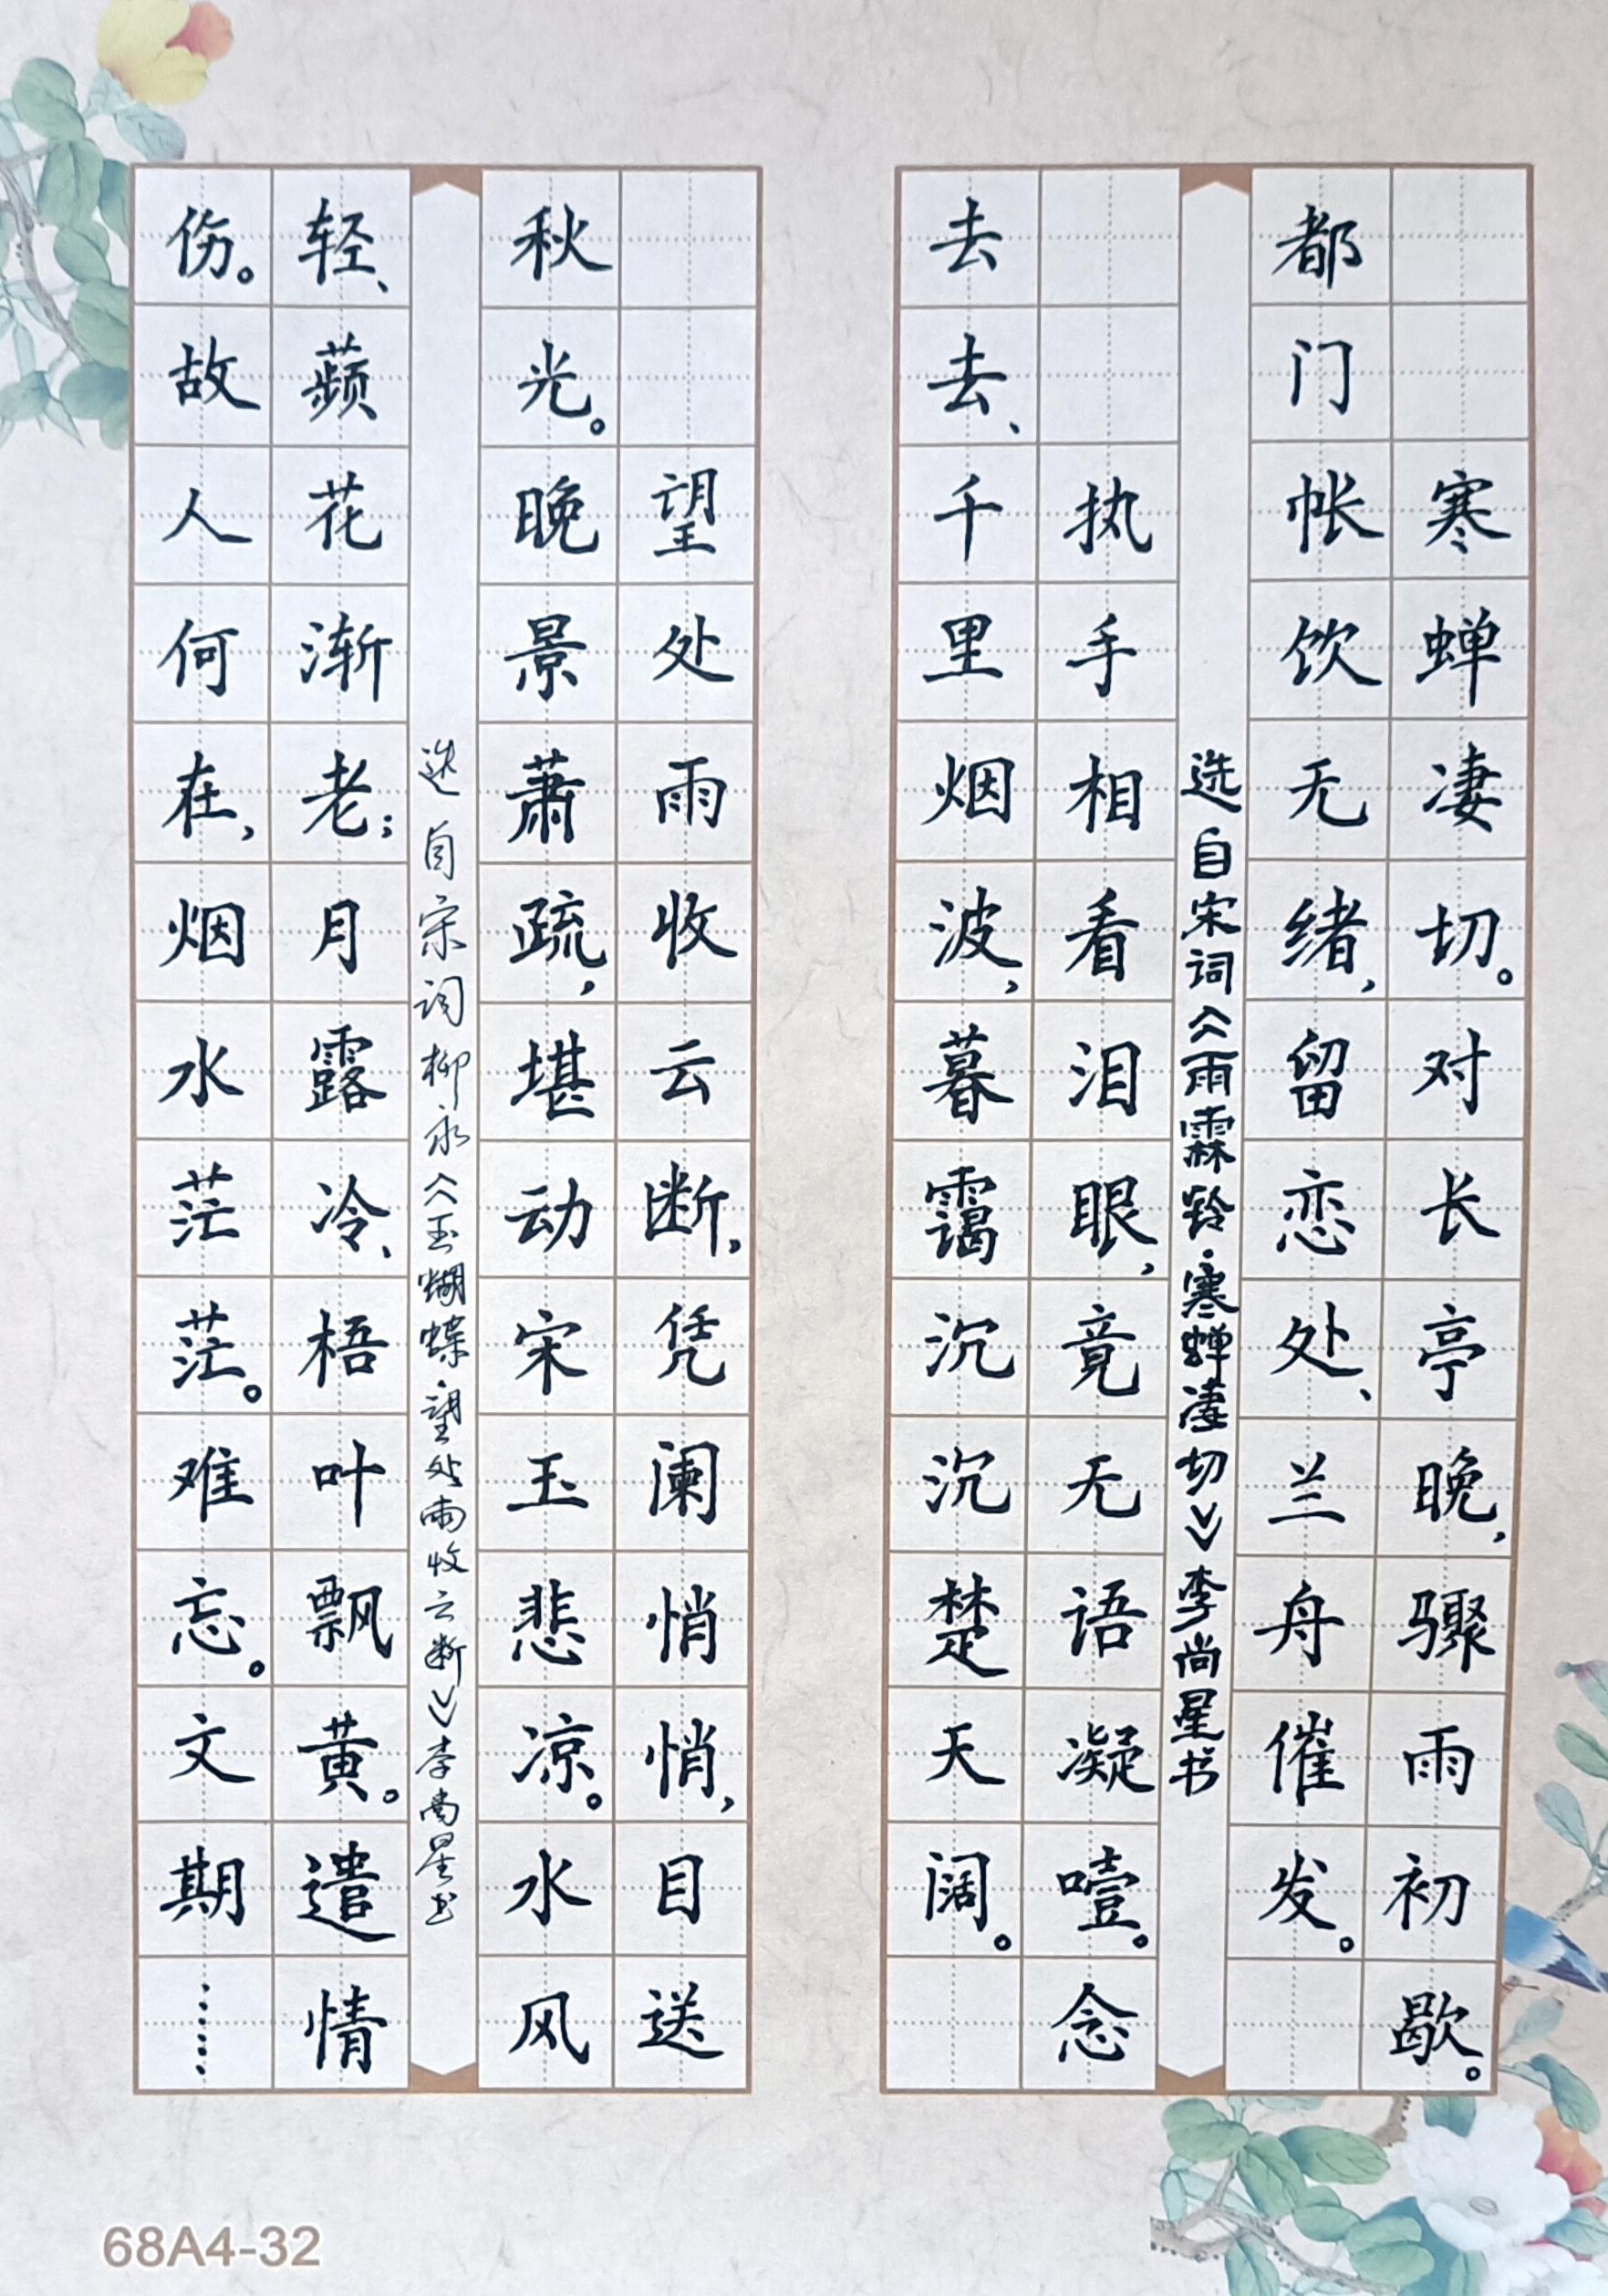 寒蝉凄切。对长亭晚，骤雨初歇。
都门帐饮无绪，留恋处、兰舟催发。
选自宋词《雨霖铃·寒蝉凄切》李尚星书
执手相看泪眼，竟无语凝噎。念
去去、千里烟波，暮霭沉沉楚天阔。
望处雨收云断，凭阑悄悄，目送
秋光。晚景萧疏，堪动宋玉悲凉。水风
选自宋词柳永《玉蝴蝶·望处雨收云断》李尚星书
轻、蘋花渐老；月露冷、梧叶飘黄。遣情
伤。故人何在，烟水茫茫。难忘。文期……
68A4-32